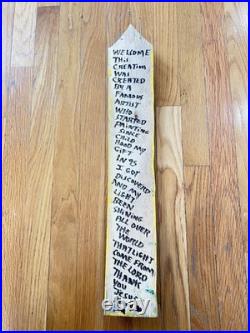 WELCOME
THIS
CREATION
WAS
CREATED
BY A
FAMOUS
ARTIST
WHO
STARTED
PAINTING
SINCE
CHILD
HOOD MY
GIFT
IN 95
I GOT
DISCOVERD
AND MY
LIGHT
BEEN
SHINING
ALL OVER
THE
WORLD
THAT LIGHT
COME FROM
THE LORD
THANK
YOU
JESUS
ebay